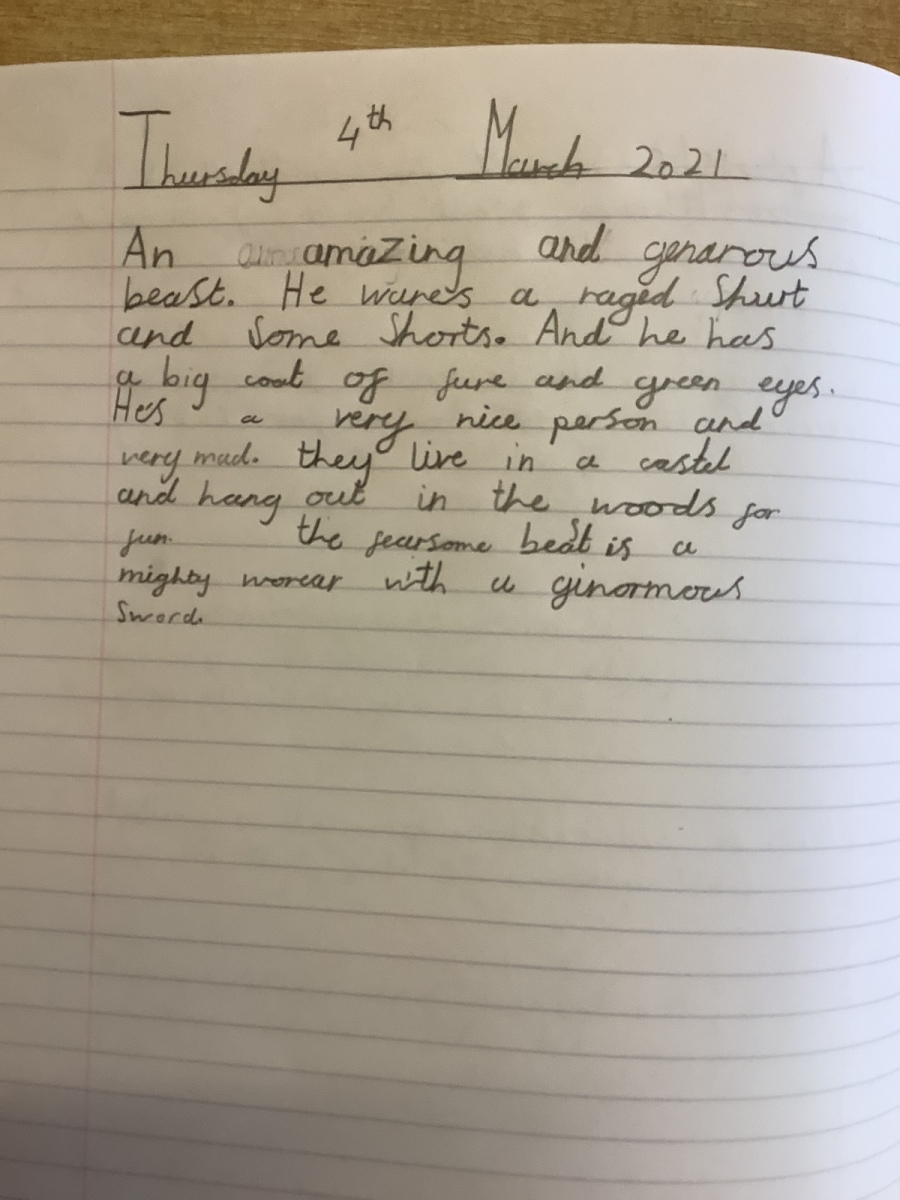 Thursday 4th March 2021
An amazing and genarous
beast. He wares a raged Shurt
and Some Shorts. And he has
a big coat of fure and green eyes.
He's a very nice person and
very mad. they live in a castel
and hang out in the woods for
fun. the fearsome beast is a
mighty worear with a ginormous
Sword.